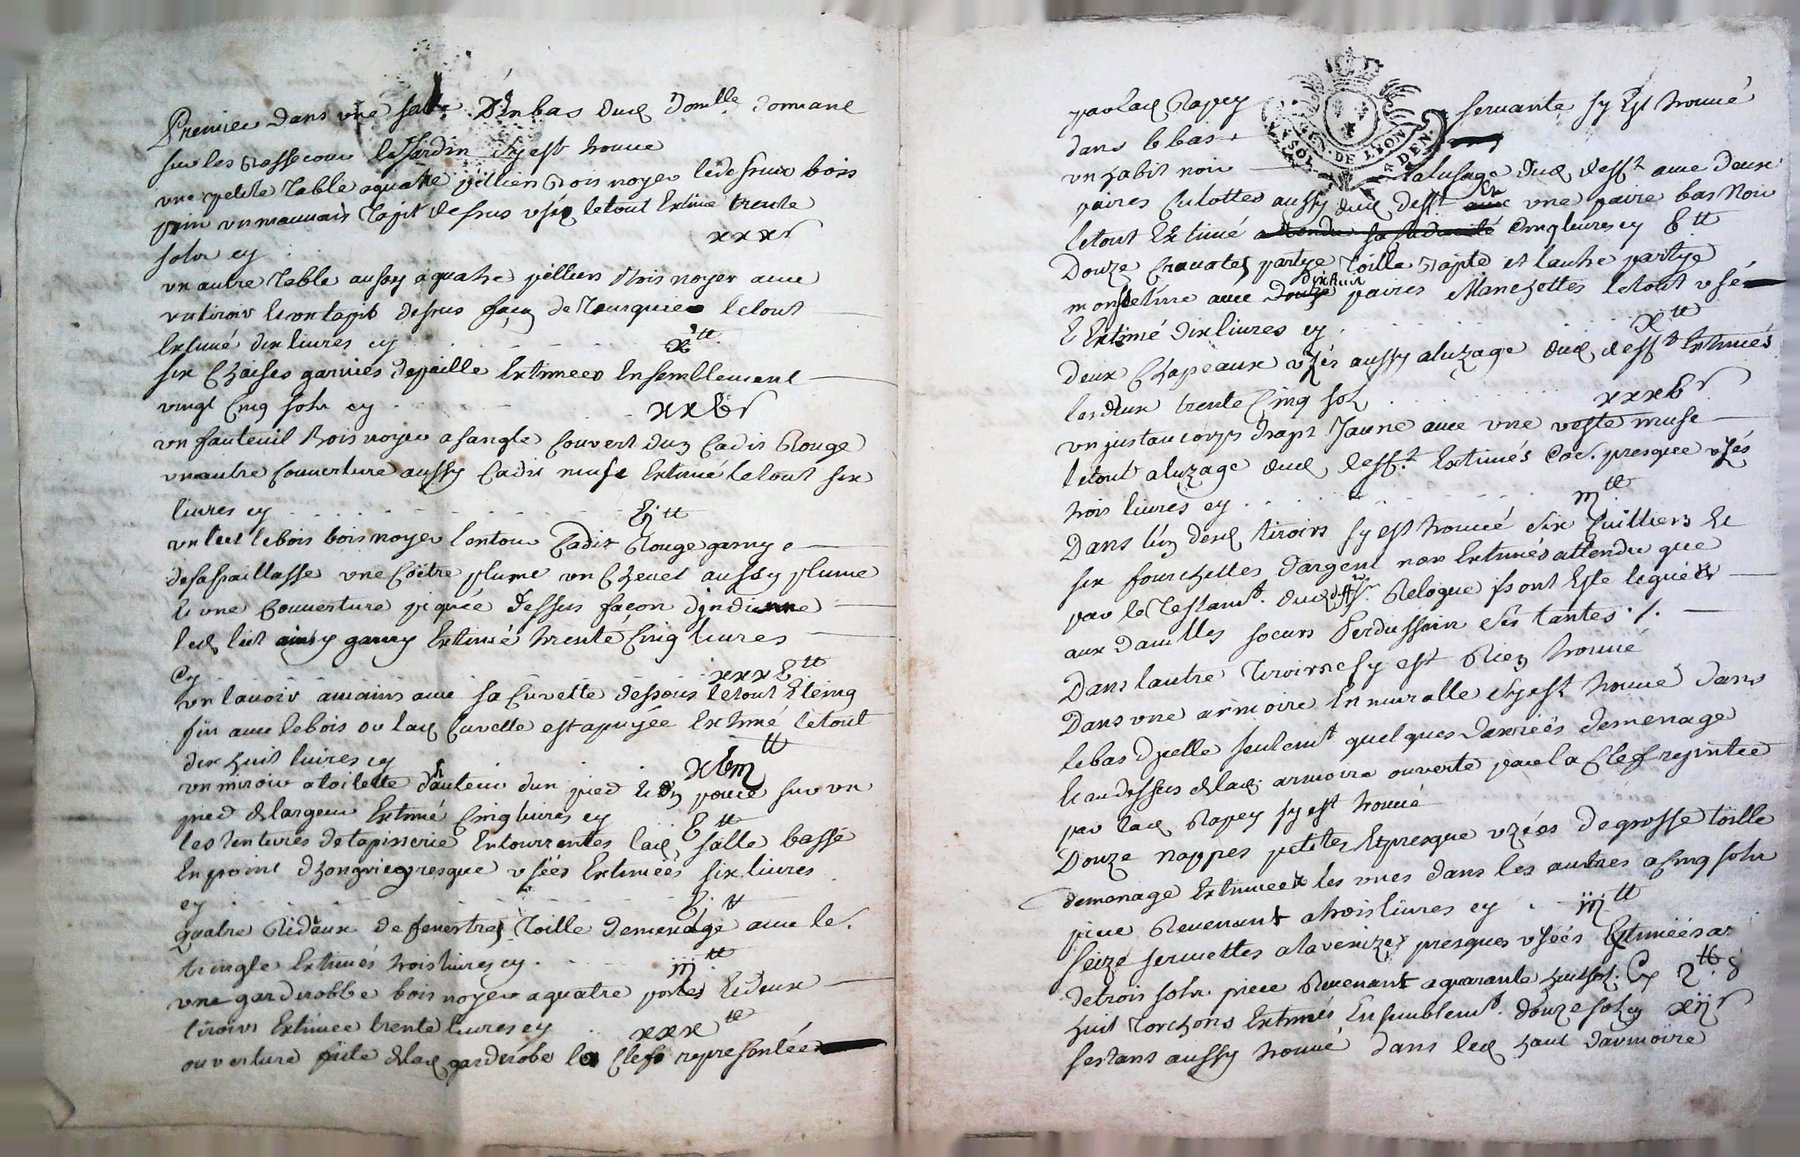 Premier dans une salle d'en bas dud. domlle. donnant
sur les basse cour le Jardin s'y est trouvé
une petite table a quatre pilliers bois noyer le dessus bois
pin un mauvais tapit dessus usés le tout Extimé trente
solz cy . xxx s
un autre table aussy a quatre pilliers bois noyer avec
un tiroir et son tapit dessus façon de Turquie le tout
Extimé dix livres cy . x tt
six chaises garnies de paille Extimées Ensemblement
vingt cinq solz cy . xxv s
un fauteuil bois noyer a sangle couvert d'un cadis Rouge
un autre couverture aussy cadis muse Extimé le tout six
livres cy . vj tt
un lict le bois bois noyer l'entour cadis Rouge garny
de sa paillasse une coitre plume un chevet aussy plume
et une couverture piquée dessus façon d'indienne
led. lict ainsy garny Extimé trente cinq livres
cy xxxv tt
un lavoir a mains avec sa cuvette dessous le tout Eteing
fin avec le bois ou lad. cuvette est apuyée Extimé le tout
dix huit livres cy xviij tt
un miroir a toilette d'hauteur d'un pied et un pouce sur un
pied de largeur Extimé cinq livres cy v tt
les tentures de tapisserie Entourrantes lad. salle basse
En point d'hongrie presque usées Extimées six livres
cy vj tt
quatre Rideaux de fenestres toille de menage avec le
tringle Extimés trois livres cy . iij tt
une garderobbe bois noyer a quatre portes et deux
tiroirs Extimée trente livres cy xxx tt
ouverture faite de lad. garderobe la clef representée
par lad. Papey servante s'y Est trouvé
dans le bas
GEN. DE LYON
2 SOLS DEN.
un habit noir a l'usage dud. defft. avec deux
paires culottes aussy dud. defft. une paire bas noir
le tout Extimé cinq livres cy v tt
Douze cravates partye toille baptiste et l'autre partye
mousseline avec dixhuit paires Manchettes le tout usé
Et Extimé dix livres cy . x tt
deux chapeaux usés aussy a l'uzage dud. defft. Extimés
les deux trente cinq solz xxxv s
un justaucorps drapt Jaune avec une veste muse
le tout a l'uzage dud. deff.t Extimés presque usés
trois livres cy . iij tt
Dans l'un desd. tiroirs s'y est trouvé six cuilliers et
six fourchettes d'argent non Extimés attendu que
par le testamt. dud. Sr. Relogue ils ont Esté legués
aux dmlles soeurs Perdussain ses tantes ./.
Dans l'autre tiroir ne s'y est Rien trouvé
Dans une armoire En muralle s'y est trouvé dans
le bas d'yelle seulemt quelques danrées de menage
et au dessus de lad. armoire ouverte par la clef rejintée
par lad. Papey s'y est trouvé
Douze nappes petites et presque uzées de grosse toille
de menage Extimées les unes dans les autres a cinq solz
piece Revenant a trois livres cy . iij tt
seize serviettes a la venize presques usées Extimées a
de trois solz piece Revenant a quarante huit sol. cy 2 tt 8
huit torchons Extimés Ensemblemt. douze sol cy xij s
s'estant aussy trouvé dans led. haut d'armoire